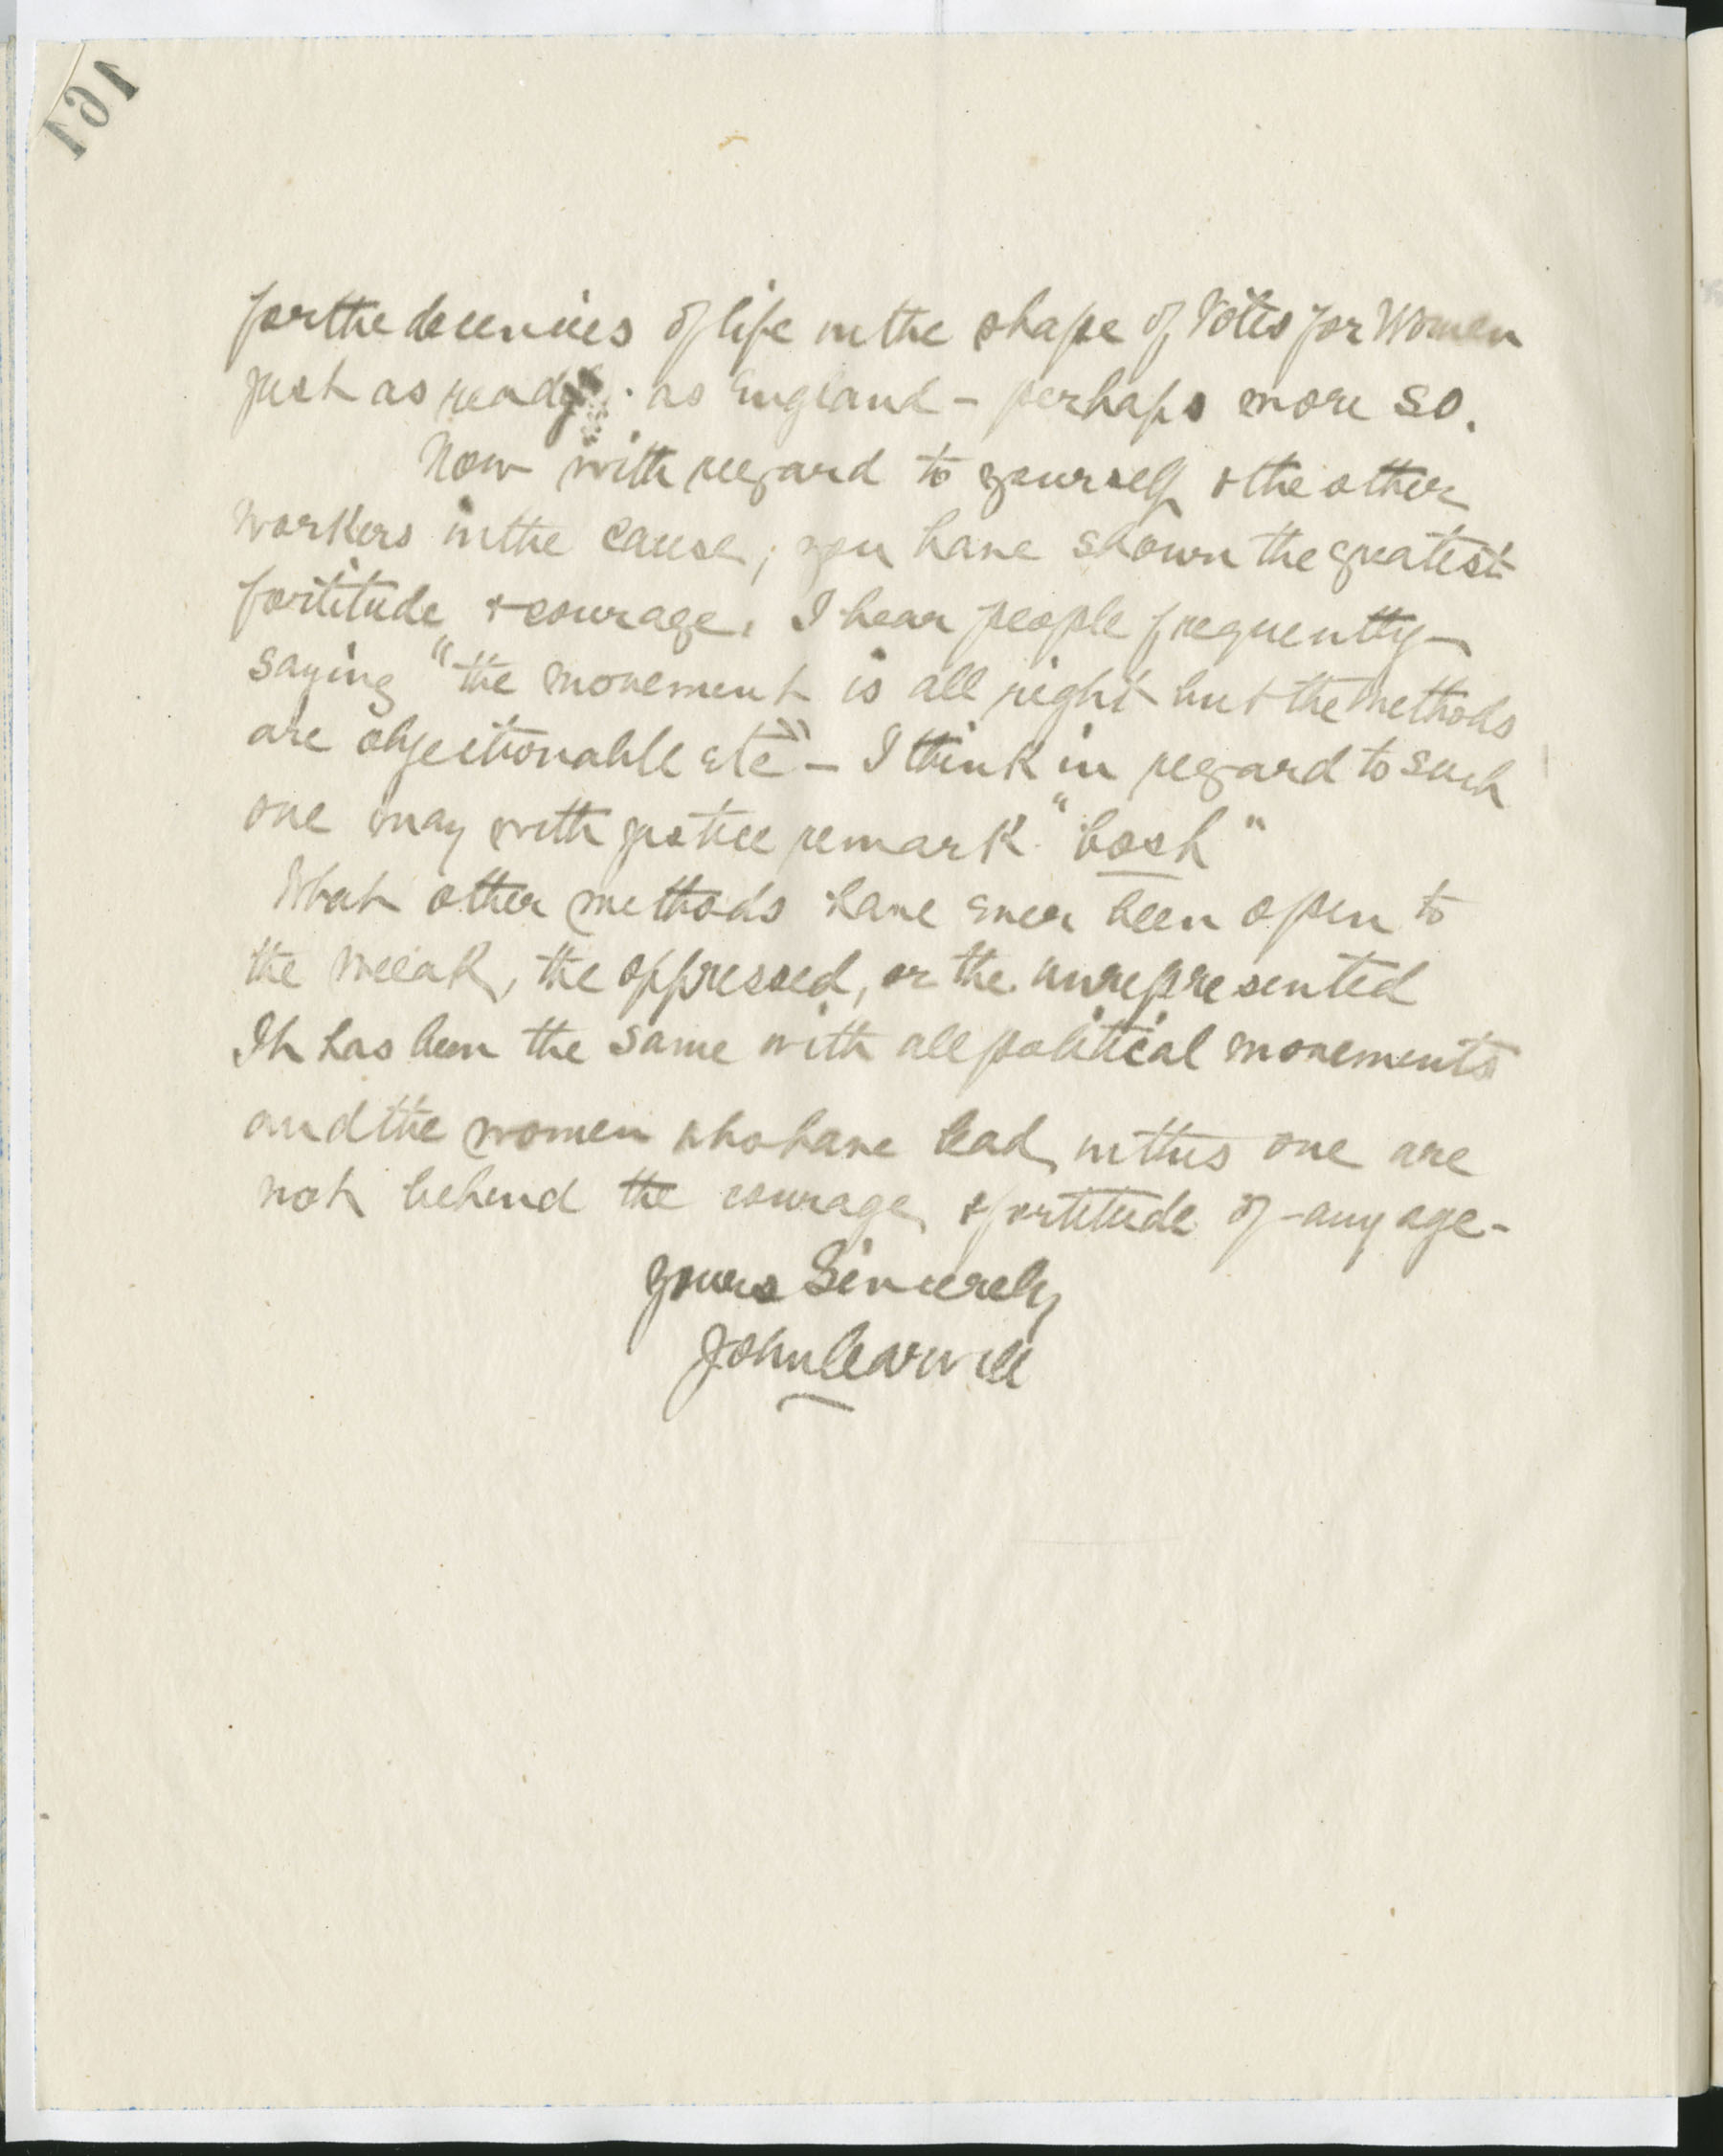 161
for the decencies of life in the shape of Votes for Women
just as ready as England - perhaps more so.
Now with regard to yourself & the other
workers in the cause, you have shown the greatest
fortitude & courage. I hear people frequently
saying "the movement is all right but the methods
are objectionable etc" - I think in regard to such
one may with justice remark "bosh"
What other methods have ever been open to
the weeak, the oppressed, or the unrepresented
It has been the same with all political movements
and the women who have lead in this one are
not behind the courage & fortitude of any age -
Yours Sincerely
John